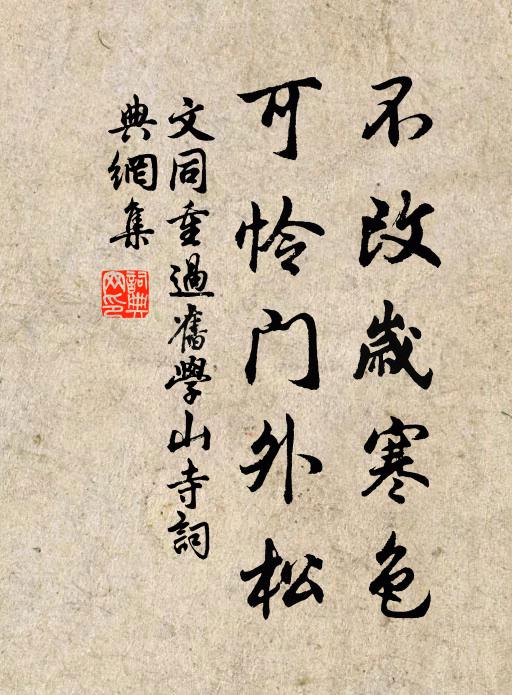 不改歲寒色
可怜门外松
文同重過舊學山寺詞
典網集
詞典網印